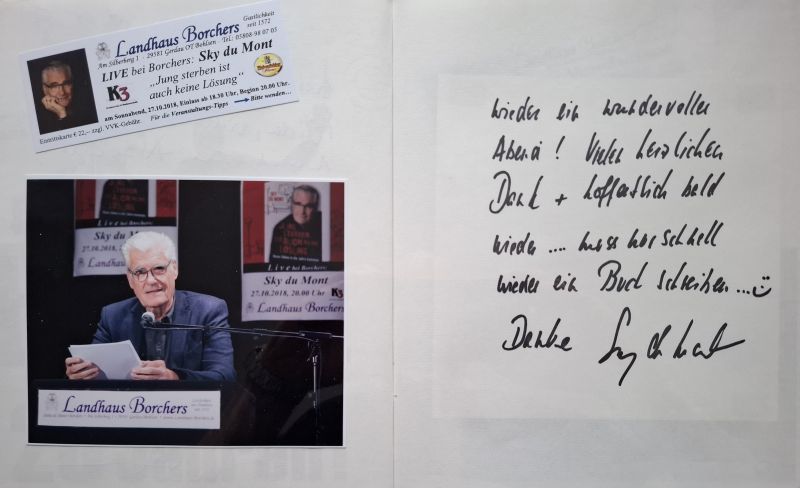 Landhaus Borchers
Gastlichkeit
seit 1572
Am Silberberg 1 · 29581 Gerdau OT Bohlsen · Tel.: 05808-98 07 05
LIVE bei Borchers: Sky du Mont
K3
„Jung sterben ist
auch keine Lösung“
am Sonnabend, 27.10.2018, Einlass ab 18.30 Uhr, Beginn 20.00 Uhr.
Eintrittskarte € 22,– zzgl. VVK-Gebühr.
Für die Veranstaltungs-Tipps
Bitte wenden...
Live bei Borchers:
Sky du Mont
Landhaus
Live bei Borchers:
Sky du Mont
27.10.2018, 20.00 Uhr K3
Landhaus Borchers
Landhaus Borchers
wieder ein wundervoller
Abend! Vielen herzlichen
Dank + hoffentlich bald
wieder .... muss nur schnell
wieder ein Buch schreiben ...
Danke Sky du Mont